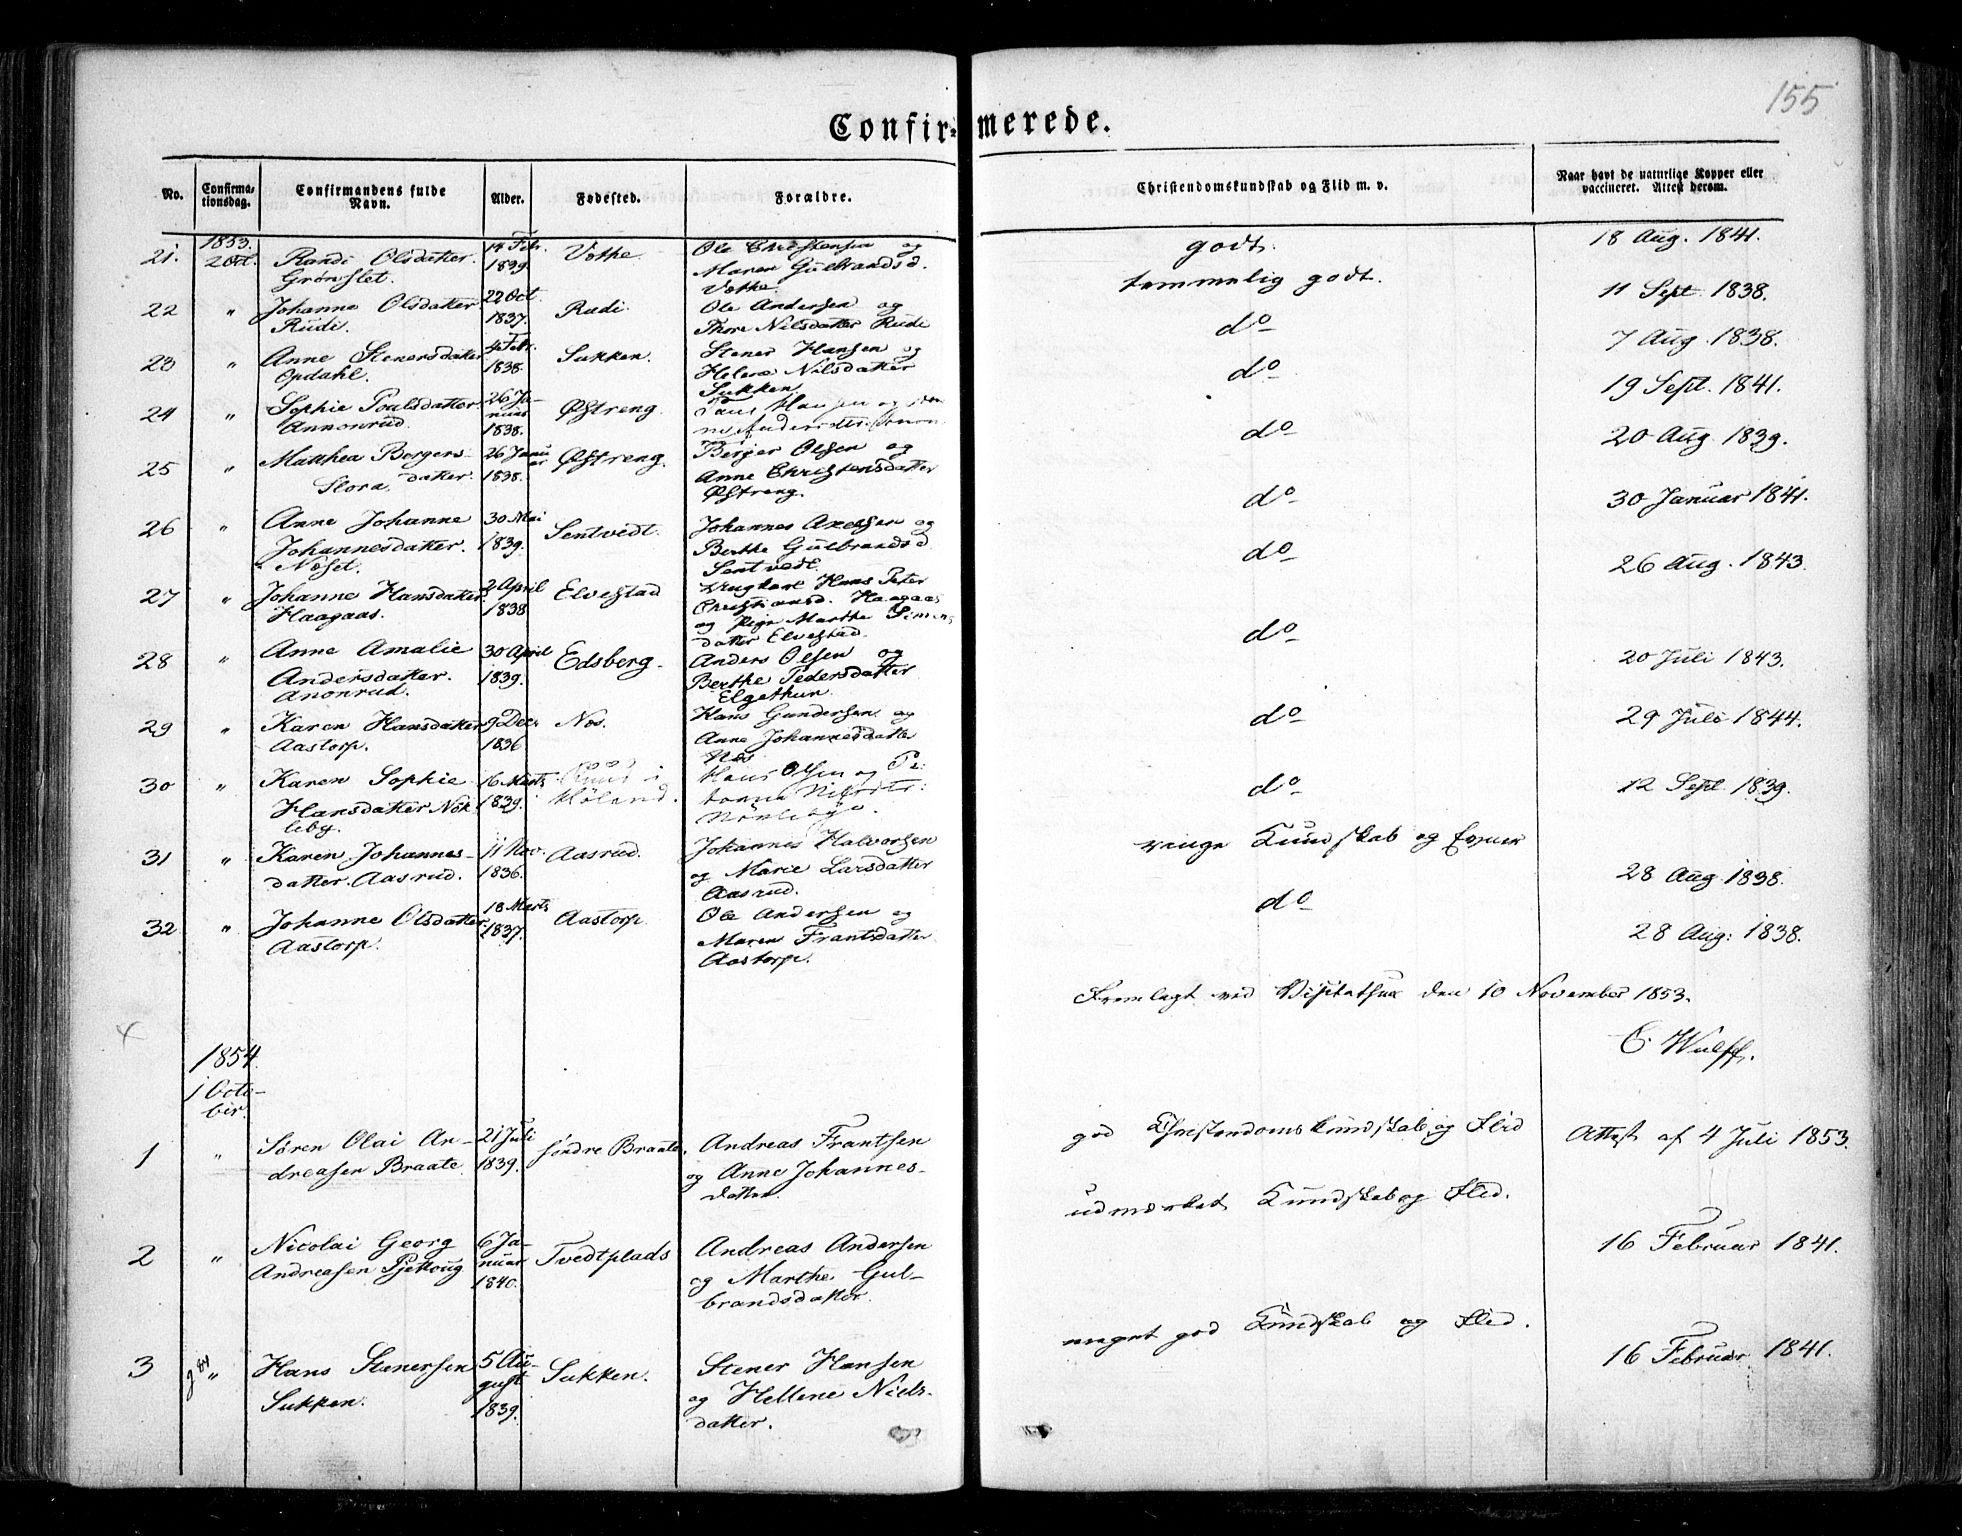 155
Confirmerede.
No. Confirmationsdag. Confirmandens fulde Navn. Alder. Fødested. Forældre. Christendomskundskab og Flid m. v. Naar havt de naturlige Kopper eller vaccineret. Attest derom.
1853.
21. 2 Oct. Randi Olsdatter 14 Febr. Vothe. Ole Christensen og godt. 18 Aug. 1841.
Grønslet. 1839 Maren Gulbrandsd.
Vothe.
22 " Johanne Olsdatter 22 Oct. Rudi. Ole Andersen og temmelig godt. 11 Sept. 1838.
Rudi. 1837. Thore Nilsdatter Rudi
23 " Anne Stenersdatter 4 Febr. Sukken. Stener Hansen og do 7 Aug. 1838.
Opdahl. 1838. Helene Nilsdatter
Sukken
24 " Sophie Poulsdatter 26 Ja- Østreng. Hansen og do 19 Sept. 1841.
Annonrud. nuar
1838.
25 " Mathea Bergers- 26 Janu Østreng. Berger Olsen og do 20 Aug 1839.
Flora datter. ar 1838. Anne Christensdatter
Østreng.
26 " Anne Johanne 30 Mai Sentvedt. Johannes Axelsen og do 30 Januar 1841.
Johannesdatter. 1839. Berthe Gulbrandsd
Nøset. Sentvedt.
27 " Johanne Hansdatter 2 April Elvestad Ungkarl Hans Peter do 26 Aug. 1843.
Haagaas. 1838 Christiansd. Haagaas
og Pige Marthe Simens
datter Elvestad.
28 " Anne Amalie 30 April Edsberg. Anders Olsen og do 20 Juli 1843.
Andersdatter. 1839. Berthe Pedersdatter
Anonrud. Elgethun.
29 " Karen Hansdatter 9 Dec. Nes. Hans Gundersen og do 29 Juli 1844.
Aastorp. 1836 Anne Johannesdatter
Nes
30 " Karen Sophie 16 Marts i Hans Olsen og do 12 Sept 1839.
Hansdatter Nøk 1839. Høland.
leby.
31 " Karen Johannes- 11 Nov. Aasrud. Johannes Halvorsen ringe Kundskab og Evner 28 Aug 1838.
datter. Aasrud. 1836. og Marie Larsdatter
Aasrud.
32 " Johanne Olsdatter 18 Marts Aastorp. Ole Andersen og do 28 Aug: 1838.
Aastorp. 1837. Maren Frantsdatter
Aastorp.
Fremlagt ved Visitatsen den 10 November 1853.
C. Wulff.
1854.
1 Octo-
ber.
1 " Søren Olai An- 21 Juli søndre Braate. Andreas Frantsen god Christendomskundskab og Flid Attest af 4 Juli 1853.
dreasen Braate. 1839. og Anne Johannes-
datter.
2 " Nicolai Georg 6 Ja- Tvedtplads Andreas Andersen udmærket Kundskab og Flid. 16 Februar 1841.
Andreasen nuar og Marthe Gul-
1840. brandsdatter.
3 " Hans Stenersen 5 Au- Sukken. Stener Hansen meget god Kundskab og Flid. 16 Februar 1841.
Sukken. gust og Hellene Niels-
1839. datter.